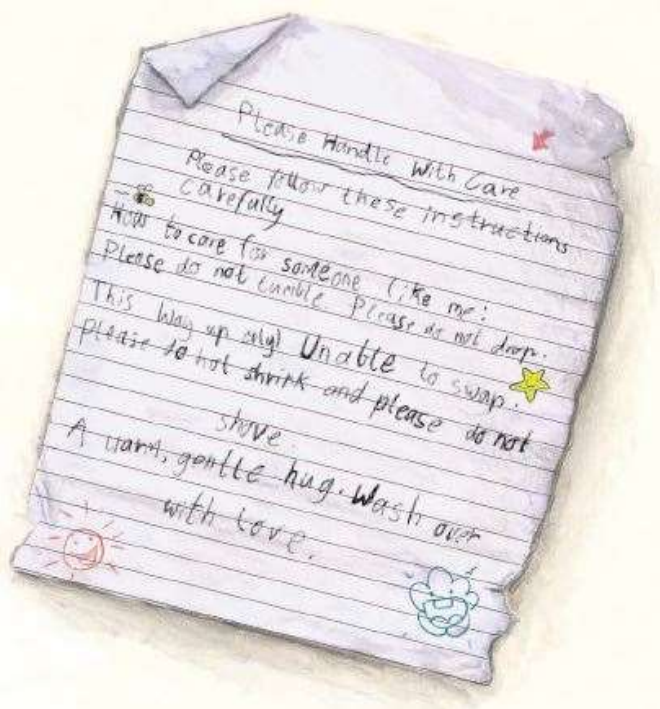 Please Handle With Care
Please follow these instructions
carefully
How to care for someone like me:
Please do not tumble Please do not drop.
This Way up only! Unable to swap.
Please do not shrink and please do not
shove.
A warm, gentle hug. Wash over
with love.